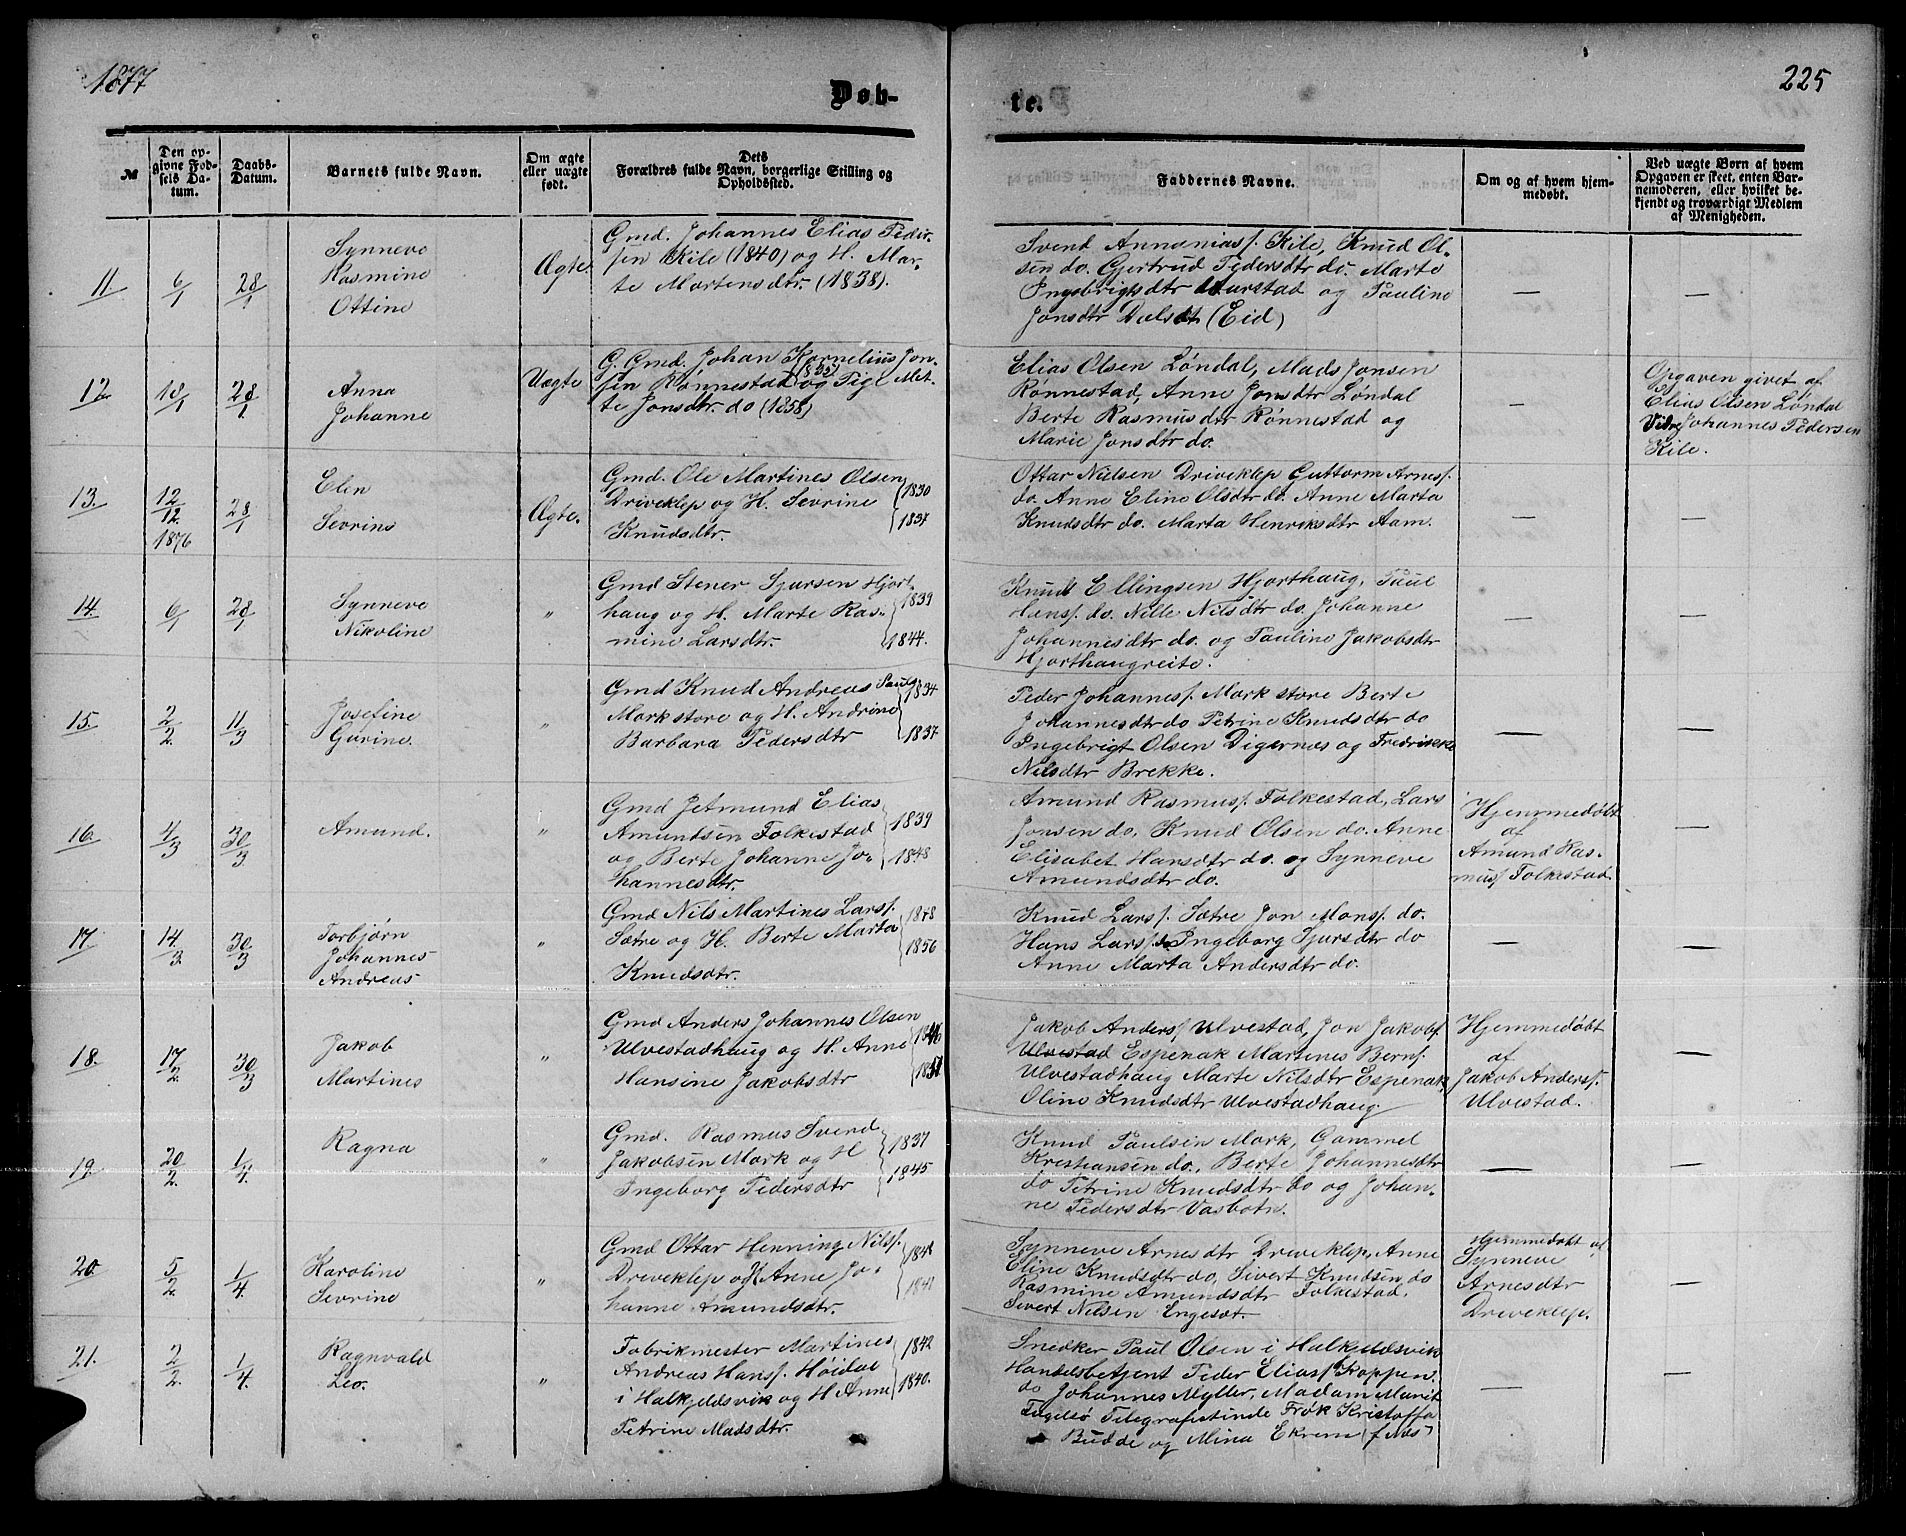 1877
225
Døb-
te.
№
Den op-
givne Fød-
sels Da-
tum.
Daabs-
Datum.
Barnets fulde Navn.
Om ægte
eller uægte
født.
Dets
Forældres fulde Navn, borgerlige Stilling og
Opholdssted.
Faddernes Navne.
Om og af hvem hjem-
medøbt.
Ved uægte Børn af hvem
Opgaven er skeet, enten Bar-
nemoderen, eller hvilket be-
kjendt og troværdigt Medlem
af Menigheden.
11
6/1
28/1
Synneve
Rasmine
Ottine
Ægte.
Gmd. Johannes Elias Peder-
sen Kile (1840) og H. Mar-
te Martensdtr. (1838).
Svend Annaniass. Kile, Knud Ol-
sen do. Gjertrud Pedersdtr do. Marte
Ingebrigtsdtr Aurstad og Pauline
Jonsdtr (Eid)
—
—
12.
18/1
28/1
Anna
Johanne
Uægte
G. Gmd. Johan Kornelius Jon-
sen Rønnestad og Pige Met-
te Jonsdtr. do (1858)
Elias Olsen Løndal, Mads Jonsen
Rønnestad, Anne Jonsdtr Løndal
Berte Rasmusdtr Rønnestad og
Marie Jonsdtr do.
—
Opgaven givet af
Elias Olsen Løndal
Vidne Johannes Pedersen
Kile.
13.
12/12.
1876
28/1
Elen
Sevrine
Ægte.
Gmd. Ole Martines Olsen
Driveklep og H. Sevrine
Knudsdtr.
1830
1837
Ottar Nilsen Driveklep Guttorm Arness.
do. Anne Eline Olsdtr do. Anne Marta
Knudsdtr do. Marta Henriksdtr Aam.
—
—
14.
6/1
28/1
Synneve
Nikoline
"
Gmd Stener Sjursen Hjort-
haug og H. Marte Ras-
mine Larsdtr.
1839
1844.
Knud Ellingsen Hjorthaug, Paul
Hanss. do. Nille Nilsdtr do. Johanne
Johannesdtr do. og Pauline Jakobsdtr
Hjorthaugreite.
—
—
15.
2/2.
11/3
Josefine
Gurine.
"
Gmd Knud Andreas Pauls.
Mork store og H. Andrine
Barbara Pedersdtr
1834
1837
Peder Johanness. Mork store Berte
Johannesdtr do Petrine Knudsdtr do
Ingebrigt Olsen Digernæs og Fredrikke
Nilsdtr Brekke.
—
—
16.
1/3
30/3
Amund.
"
Gmd Jetmund Elias
Amundsen Folkestad
og Berte Johanne Jo-
hannesdtr.
1839
1848
Amund Rasmuss. Folkestad, Lars
Jonsen do. Knud Olsen do. Anne
Elisabet Hansdtr do. og Synneve
Amundsdtr do.
Hjemmedøbt
af
Amund Ras-
muss Folkestad.
—
17
14/3.
30/3
Torbjørn
Johannes
Andreas
"
Gmd Nils Martines Larss.
Sætre og H. Berte Marta
Knudsdtr.
1848
1856
Knud Larss. Sætre Jon Monss. do.
Hans Larss. do Ingeborg Sjursdtr do
Anne Marta Andersdtr do.
—
—
18.
17/2.
30/3
Jakob
Martines
"
Gmd Anders Johannes Olsen
Ulvestadhaug og H. Anne
Hansine Jakobsdtr
Jakob Anderss Ulvestad, Jon Jakobs.
Ulvestad Espenak Martenes Bernss.
Ulvestadhaug Marte Nilsdtr Espenak
Oline Knudsdtr Ulvestadhaug
Hjemmedøbt
af
Jakob Anderss.
Ulvestad.
—
19.
20/2.
1/4.
Ragna
"
Gmd. Rasmus Svend
Jakobsen Mork og H
Ingeborg Pedersdtr
1837
1845
Knud Paulsen Mork, Gammel
Kristiansen do. Berte Johannesdtr
do Petrine Knudsdtr do og Johan-
ne Pedersdtr Vasbotn.
—
—
20.
5/2.
1/4.
Karoline
Sevrine
"
Gmd Ottar Henning Nilss.
Driveklep og H Anne Jo-
hanne Amundsdtr.
1848
1841
Synneve Arnesdtr Driveklep, Anne
Eline Knudsdtr do, Sivert Knudsen do
Rasmine Amundsdtr Folkestad.
Sivert Nilsen Engeset.
Hjemmedøbt af
Synneve
Arnesdtr
Driveklep.
—
21.
2/2.
1/4.
Ragnvald
Leo.
"
Fabrikmester Martines
Andreas Hanss. Høidal
i Halkjeldsvik og H Anne
Petrine Madsdtr.
1842
1840.
Snedker Paul Olsen i Halkjeldsvik
Handelsbetjent Peder Eliass Koppen.
do Johannes Myller, Madam Marit
Fuglsø Telegrafistinde Frøk Kristoffa
Budde og Mina Ekrem
—
—